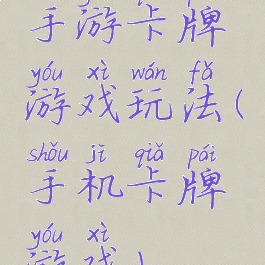 手游卡牌
yóu xì wán fǎ
游戏玩法(
shǒu jī qiǎ pái
手机卡牌
yóu xì
游戏)